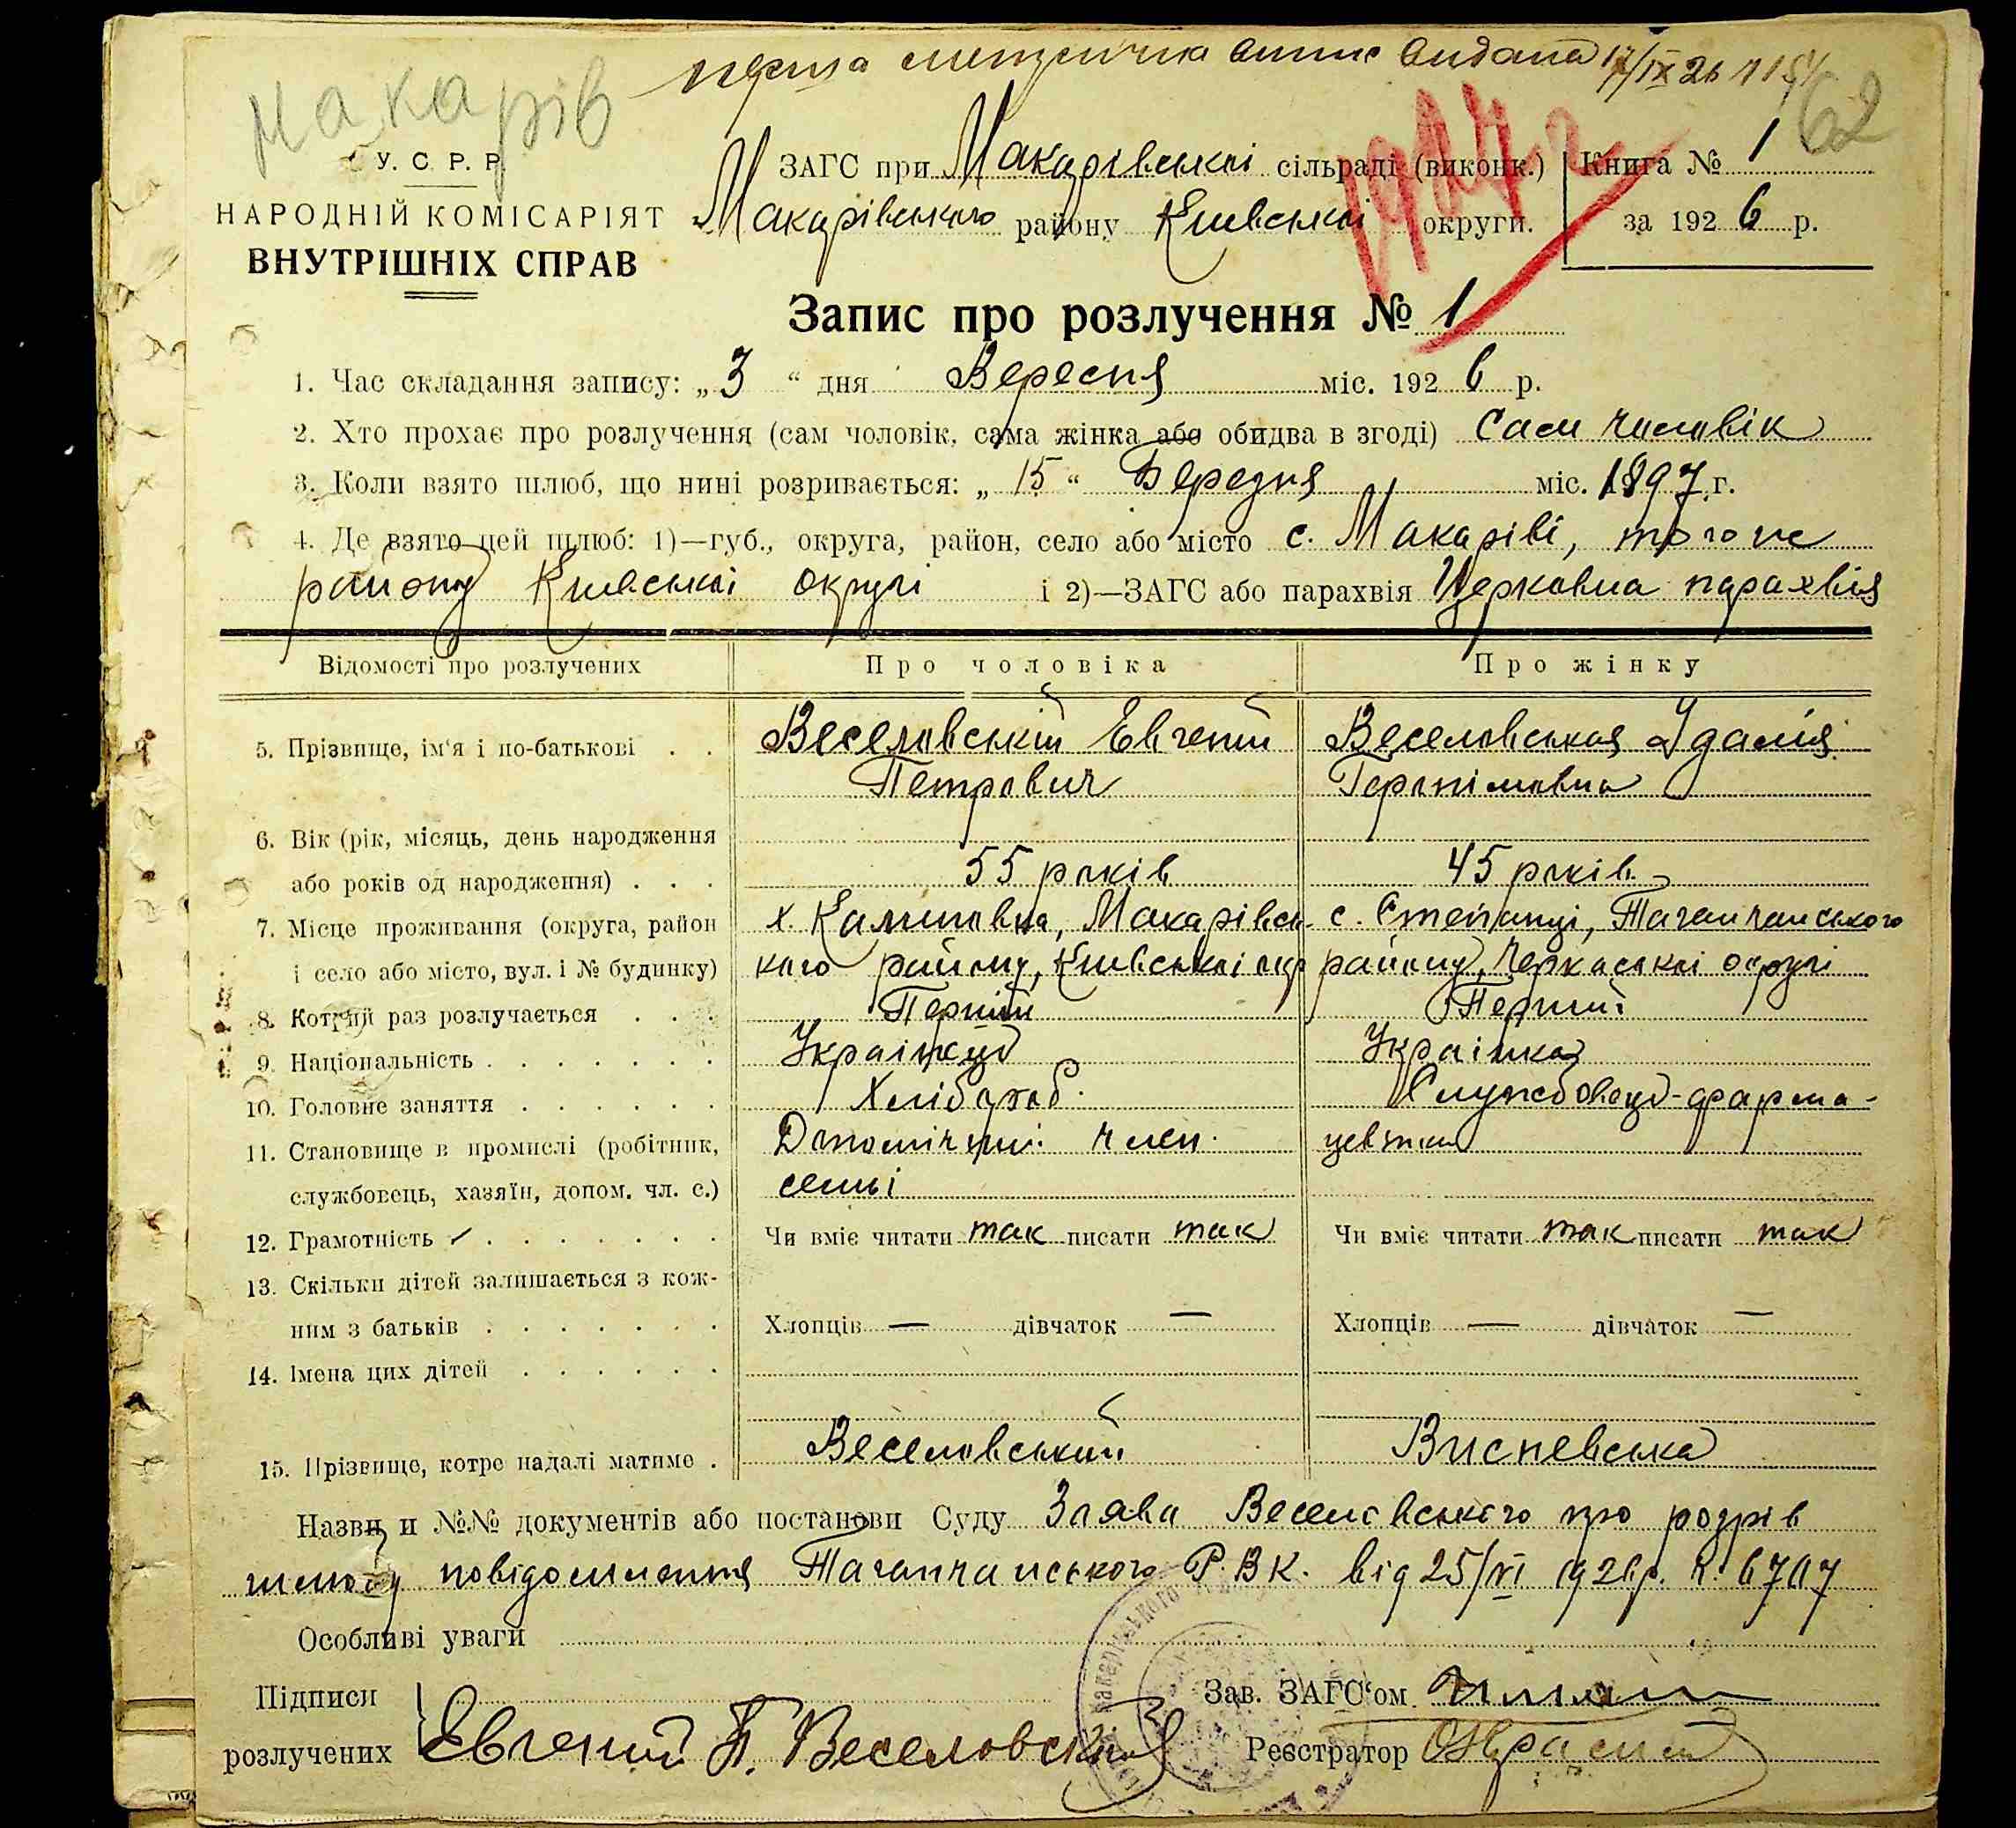 перша метрична випис видана 17/IX 26
Макарів
62
У. С. Р. Р.
НАРОДНІЙ КОМІСАРІЯТ
ВНУТРІШНІХ СПРАВ
ЗАГС при Макарівській сільраді (виконк.)
Макарівського району Київської округи.
Книга № 1
за 1926 р.
Запис про розлучення № 1
1. Час складання запису: „3“ дня Вересня міс. 1926 р.
2. Хто прохає про розлучення (сам чоловік, сама жінка або обидва в згоді) Сам чоловік
3. Коли взято шлюб, що нині розривається: „15“ Березня міс. 1897 г.
4. Де взято цей шлюб: 1)—губ., округа, район, село або місто с. Макаріві, того ж
району Київськоі округі і 2)—ЗАГС або парахвія Церковна парахвія
Відомості про розлучених Про чоловіка Про жінку
5. Прізвище, ім'я і по-батькові . . Веселовський Евгений Веселовськая Ідалія
Петрович Геронімовна
6. Вік (рік, місяць, день народження
або років од народження) . . . 55 років 45 років
7. Місце проживання (округа, район х. Калиновка, Макарівсь- с. Степанці, Таганчанського
і село або місто, вул. і № будинку) кого району, Київськоі окр району, Черкаськоі округі
8. Котрий раз розлучається . . . Перший Перший
9. Національність . . . . . . . Украінець Украінка
10. Головне заняття . . . . . . Хлібороб Службовець-фарма-
11. Становище в промислі (робітник, Допомічний член цевтка
службовець, хазяїн, допом. чл. с.) семьі
12. Грамотність . . . . . . . Чи вміє читати так писати так Чи вміє читати так писати так
13. Скільки дітей залишається з кож-
ним з батьків . . . . . . . Хлопців — дівчаток — Хлопців — дівчаток —
14. Імена цих дітей . . . . . .
15. Прізвище, котре надалі матиме . Веселовський Висневська
Назви и №№ документів або постанови Суду Заява Веселовського про розрів
шлюбу повідомлення Таганчанського Р.В.К. від 25/VI 1926 р. ч. 6707
Особливі уваги
Підписи Зав. ЗАГС'ом
розлучених Евгений П. Веселовский Реєстратор